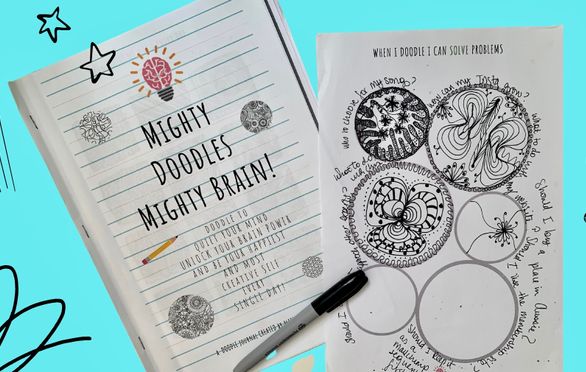 MIGHTY
DOODLES
MIGHTY BRAIN!
DOODLE TO
QUIET YOUR MIND
UNLOCK YOUR BRAIN POWER
AND BE YOUR HAPPIEST
AND MOST
CREATIVE SELF
EVERY
SINGLE DAY!
A DOODLE JOURNAL CREATED BY
WHEN I DOODLE I CAN SOLVE PROBLEMS
who to choose for my song?
can my Insta grow?
what to do
Should I buy a place in Aussie?
Should I use the membership
Should I
Should I
as a
mailchimp